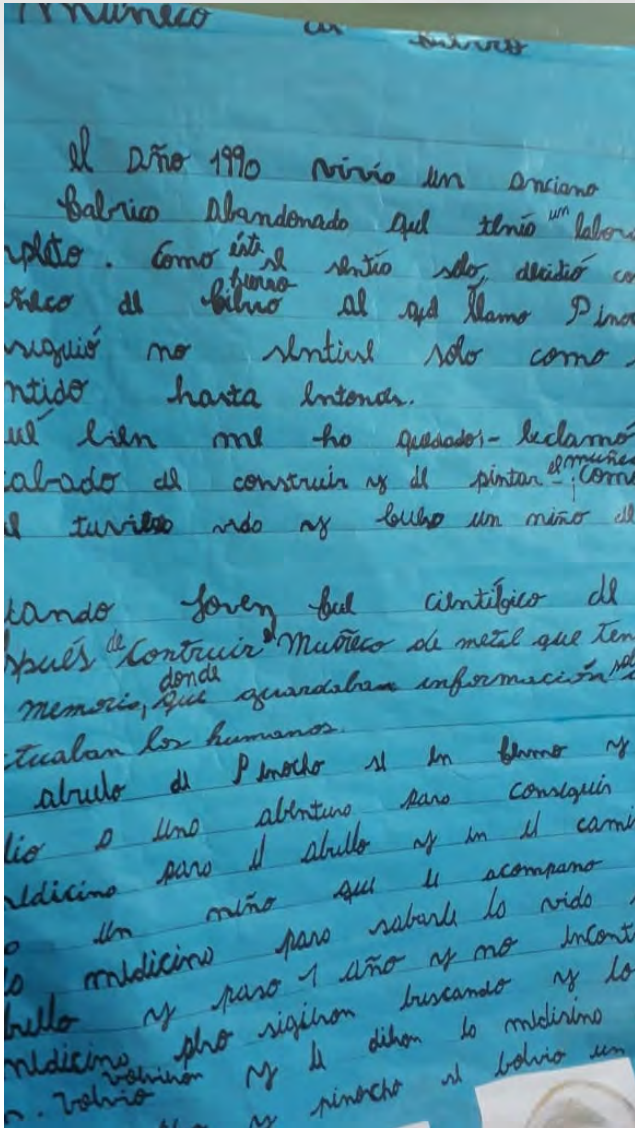 Muñeco de
el año 1990 vivio un anciano
fabrica abandonado que tenia un labora
mpleto. Como éste se sentia solo, decidió co
ñeco de fierro al que llamo Pinoc
nsiguió no sentirse solo como
ntido hasta entonces.
ue bien me ha quedado!- exclamó
cabado de construir y de pintar - el muñeco ¡Como
si tuviese vida y fuese un niño de
uando Joven fue cientifico de
spués de Contruir el Muñeco de metal que ten
memoria, donde guardaban información
ctuaban los humanos.
abuelo de Pinocho se en fermo y
lio a una abentura para conseguir
medicina para el abuello y en el cami
o un niño que le acompano
la medicina para sabarle la vida
buello y paso 1 año y no incont
medicina pero sigieron buscando y lo
n. volvieron y le dieron la medisina
y pinocho se bolvio un